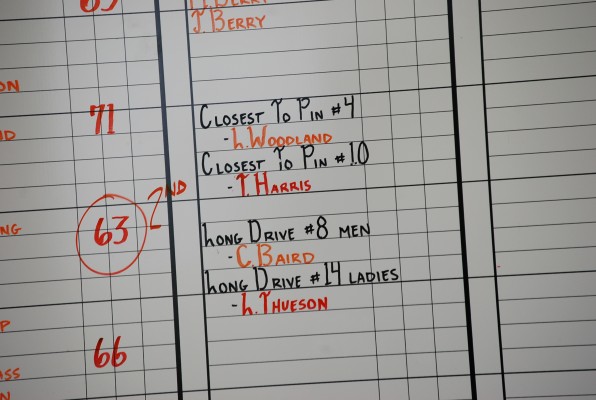 J. BERRY
71
CLOSEST TO PIN #4
- L. WOODLAND
CLOSEST TO PIN #10
- T. HARRIS
63
2ND
LONG DRIVE #8 MEN
- C. BAIRD
LONG DRIVE #14 LADIES
- L. THUESON
66